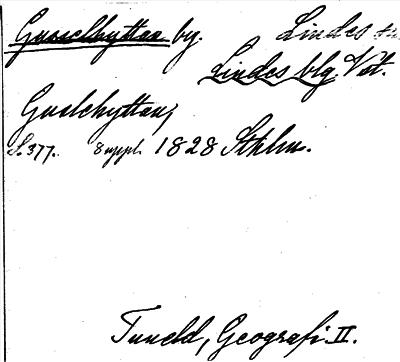 Gusselhyttan by. Lindes
Lindesblg Vst.
Guslehyttan,
S. 377. 8 uppl. 1828 Sthlm.
Tuneld, Geografi II.